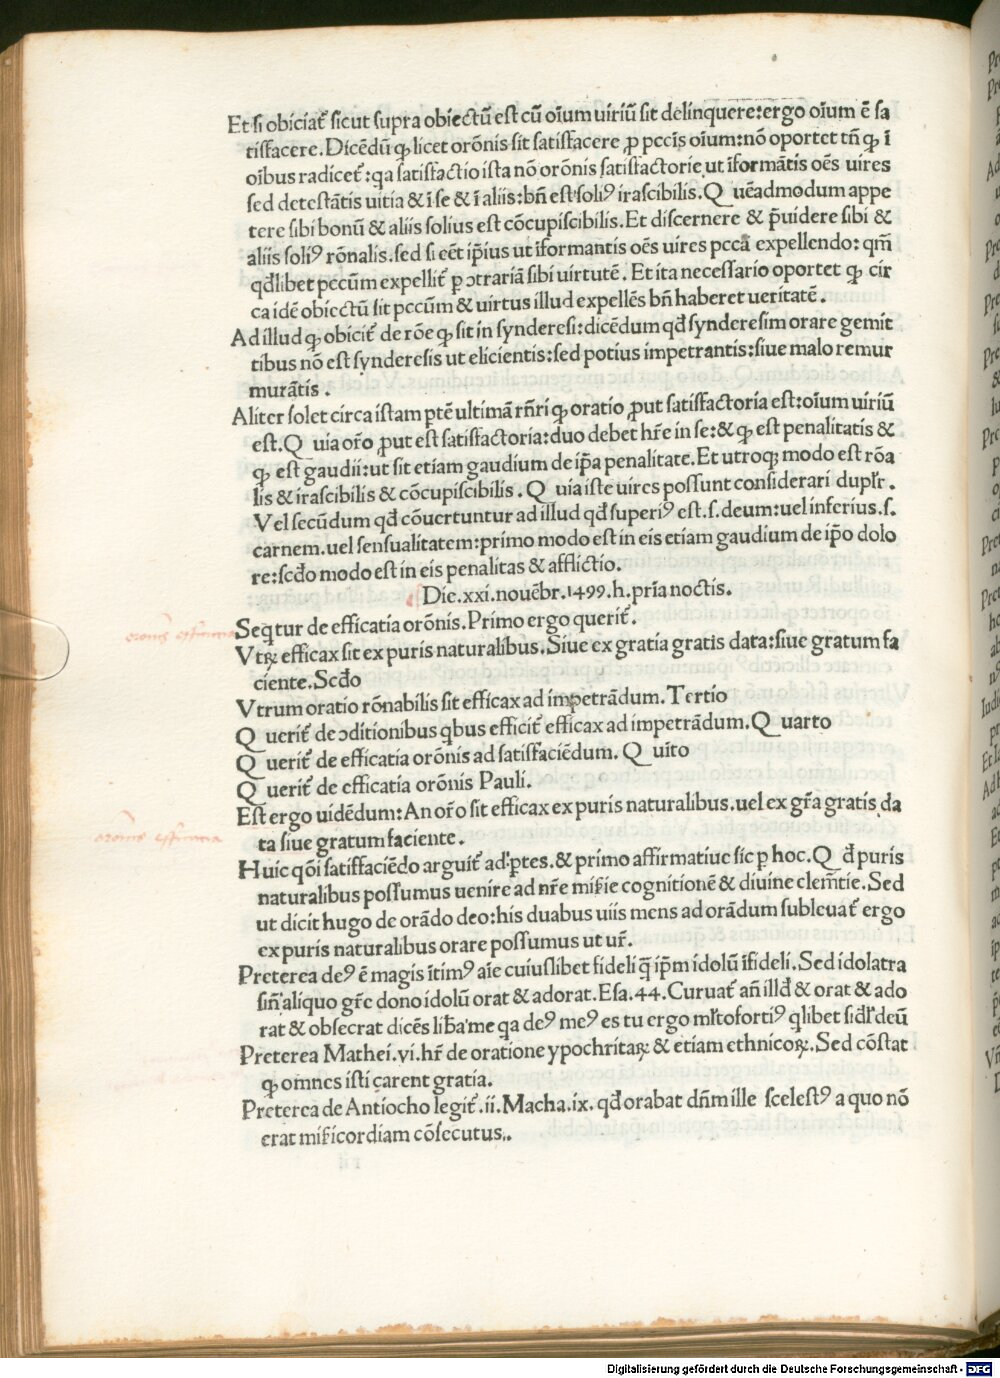 Et si obiciat᷑ sicut supra obiectū est cū oīum uiriū sit delinquere:ergo oīum ē sa
tisfacere.Dicēdū ꝙ licet orōnis sit satisfacere ꝓ pccīs oīum:nō oportet tn̄ ꝙ ī
oībus radicet᷑:qa satisfactio ista nō orōnis satisfactorie ut īformātis oēs uires
sed detestātis uitia & ī se & ī aliis:bn̄ est soliꝰ irascibilis.Q uēadmodum appe
tere sibi bonū & aliis solius est cōcupiscibilis.Et discernere & p̄uidere sibi &
aliis soliꝰ rōnalis.sed si eēt ip̄ius ut īformantis oēs uires pccā expellendo: qm̄
qd̄libet pccūm expellit᷑ p ɔtrariā sibi uirtutē. Et ita necessario oportet ꝙ cir
ca idē obiectū sit pccūm & uirtus illud expellēs bn̄ haberet ueritatē.
Ad illud ꝙ obicit᷑ de rōe ꝙ sit in synderesi:dicēdum qd̄ synderesim orare gemit
tibus nō est synderesis ut elicientis:sed potius impetrantis:siue malo remur
murātis .
Aliter solet circa istam ptē ultimā rn̄ri ꝙ oratio ꝓut satisfactoria est:oīum uiriū
est.Q uia or̄o ꝓut est satisfactoria:duo debet hr̄e in se:& ꝙ est penalitatis &
ꝙ est gaudii:ut sit etiam gaudium de ip̄a penalitate.Et utroqꝫ modo est rōa
lis & irascibilis & cōcupiscibilis.Q uia iste uires possunt considerari duplr̄.
Vel secūdum qd̄ cōuertuntur ad illud qd̄ superiꝰ est.s.deum:uel inferius.s.
carnem.uel sensualitatem:primo modo est in eis etiam gaudium de ip̄o dolo
re:scd̄o modo est in eis penalitas & afflictio.
Die.xxi.nouēbr.1499.h.prīa noctis.
Seqtur de efficatia orōnis.Primo ergo querit᷑.
Vtꝝ efficax sit ex puris naturalibus.Siue ex gratia gratis data:siue gratum fa
ciente.Scd̄o
Vtrum oratio rōnabilis sit efficax ad impetrādum.Tertio
Q uerit᷑ de ɔditionibus qbus efficit᷑ efficax ad impetrādum.Q uarto
Q uerit᷑ de efficatia orōnis ad satisfaciēdum.Q uīto
Q uerit᷑ de efficatia orōnis Pauli.
Est ergo uidēdum:An or̄o sit efficax ex puris naturalibus.uel ex gr̄a gratis da
ta siue gratum faciente.
Huic qōi satisfaciēdo arguit᷑ ad ptes.& primo affirmatiue sic p hoc.Q d̄ puris
naturalibus possumus uenire ad nr̄e mis̄ie cognitionē & diuine clem̄tie.Sed
ut dicit hugo de orādo deo:his duabus uiis mens ad orādum subleuat᷑ ergo
ex puris naturalibus orare possumus ut ur̄.
Preterea deꝰ ē magis ītimꝰ aīe cuiuslibet fideli q̄ ip̄m idolū īfideli.Sed idolatra
sin̄ aliquo gr̄e dono idolū orat & adorat.Esa.44.Curuat᷑ an̄ illd̄ & orat & ado
rat & obsecrat dicēs lib̄a me qa deꝰ meꝰ es tu ergo ml̄tofortiꝰ qlibet fidl̄ deū
Preterea Mathei.vi.hr̄ de oratione ypochritaꝝ & etiam ethnicoꝝ.Sed cōstat
ꝙ omnes isti carent gratia.
Preterea de Antiocho legit᷑.ii.Macha.ix. qd̄ orabat dn̄m ille scelestꝰ a quo nō
erat mis̄icordiam cōsecutus..
Digitalisierung gefördert durch die Deutsche Forschungsgemeinschaft - DFG